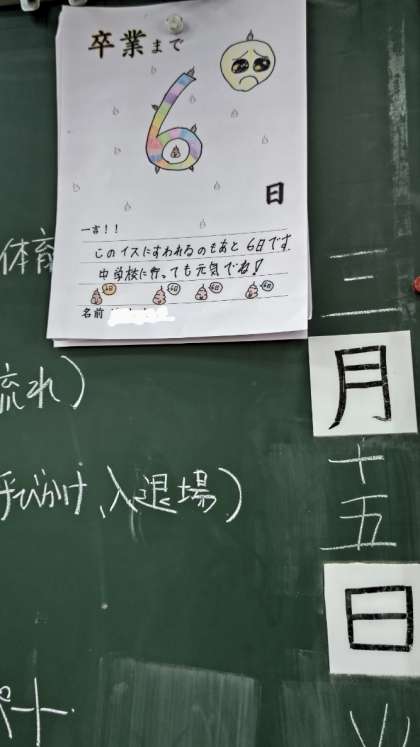 卒業まで
6
日
一言!!
このイスにすわれるのもあと6日です
中学校に行っても元気でね!
6日 6日 6日 6日
名前
体育
流れ)
呼びかけ、入退場)
三
月
十
五
日